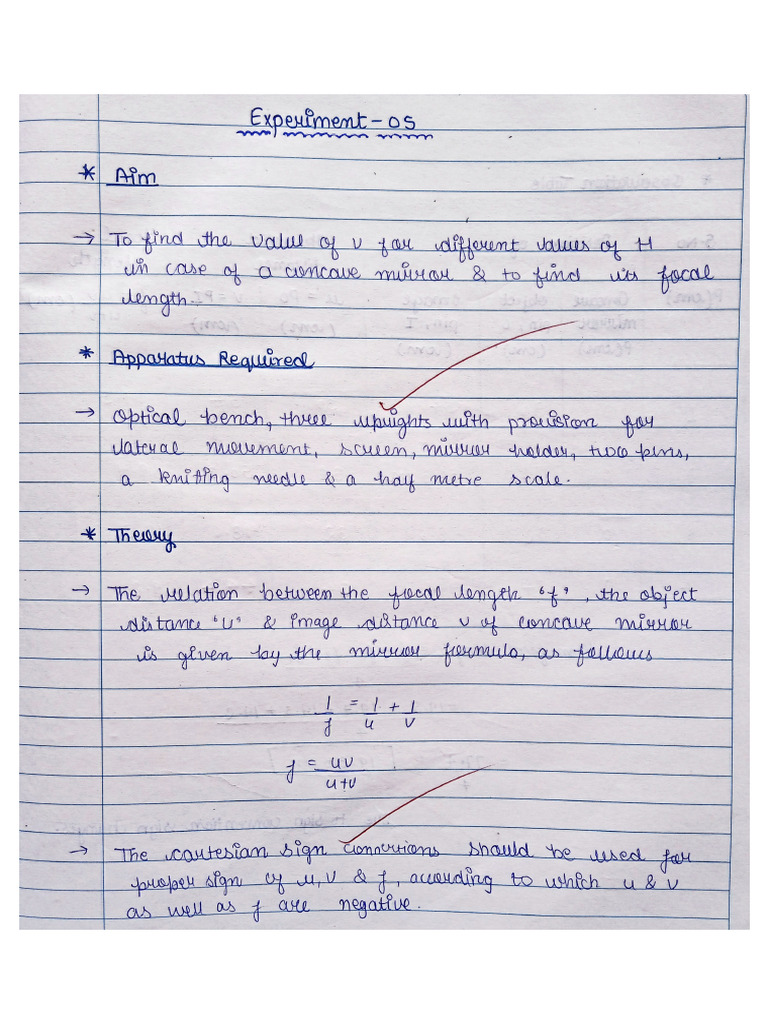 Experiment-05
* Aim
→ To find the value of v for different values of H
in case of a concave mirror & to find its focal
length.
* Apparatus Required
→ Optical bench, three uprights with provision for
lateral movement, screen, mirror holder, two pins,
a knitting needle & a half metre scale.
* Theory
→ The relation between the focal length 'f', the object
distance 'u' & image distance v of concave mirror
is given by the mirror formula, as follows
1/f = 1/u + 1/v
f = uv/u+v
→ The cartesian sign should be used for
proper sign of u, v & f, according to which u & v
as well as f are negative.